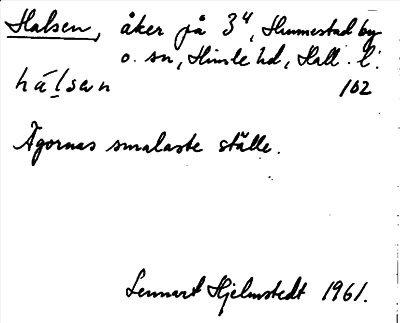 Halsen, åker på 3⁴, Hunnestad by
o. sn, Himle hd, Hall. l.
hálsan 102
Ägornas smalaste ställe.
Lennart Hjelmstedt 1961.